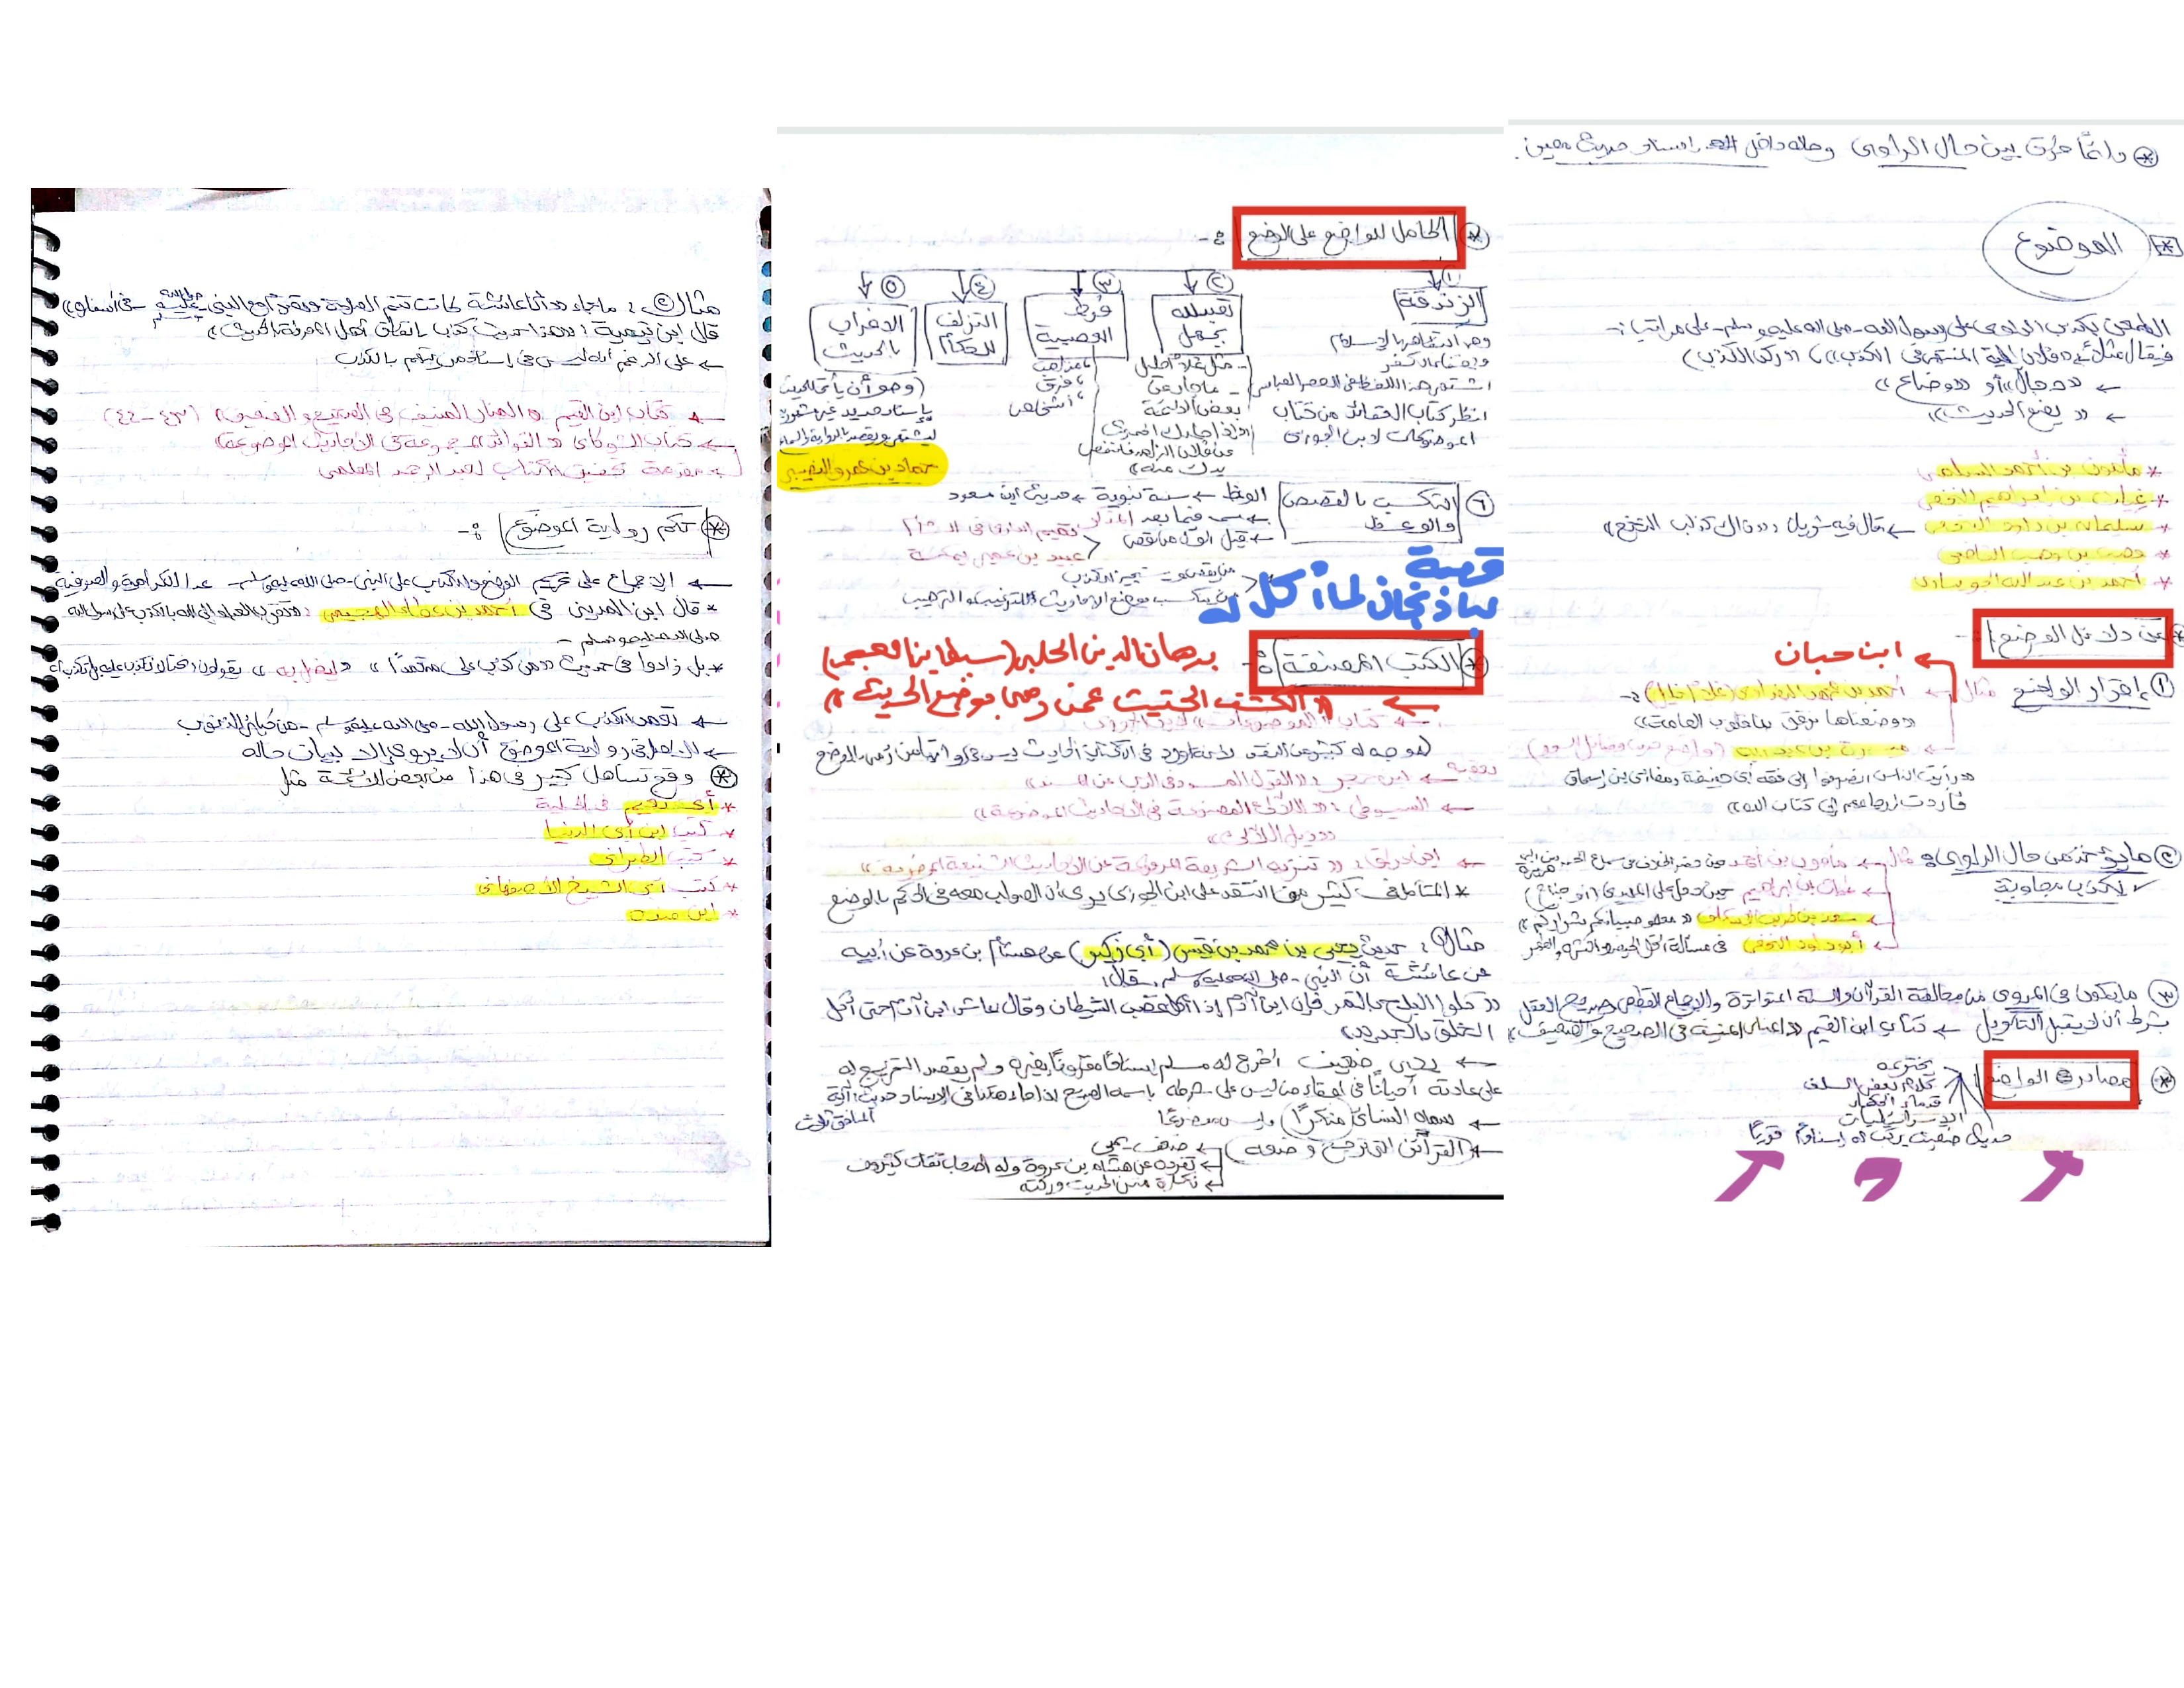 * دائمًا فرّق بين حال الراوي وحاله داخل إسناد حديث معين.
* الموضوع
الطعن بكذب الراوي على رسول الله -صلى الله عليه وسلم- على مراتب :-
فيقال مثلًا: «فلان إليه المنتهى في الكذب»، «ركن الكذب»
← «دجال» أو «وضاع»
← «يضع الحديث»
* مأمون بن أحمد السلمي
* غياث بن إبراهيم النخعي
* سليمان بن داود النخعي ← قال فيه شريك: «ذاك كذاب النخع»
* وهب بن وهب القاضي
* أحمد بن عبدالله الجويباري
* من دلائل الوضع :-
ابن حبان
① إقرار الواضع مثال ← أحمد بن محمد (غلام خليل) :-
«وضعناها نرقق بها قلوب العامة»
← ميسرة بن عبد ربه
«رأيت الناس انصرفوا إلى فقه أبي حنيفة ومغازي بن إسحاق
فأردت إرجاعهم إلى كتاب الله»
② ما يؤخذ من حال الراوي : مثال ← مأمون بن أحمد
كذب معاوية
← غياث بن إبراهيم حين دخل على المهدي (أو جناح)
← سعد بن طريف الإسكاف «معلمو صبيانكم شراركم»
← أبو داود النخعي في مسألة أقل الحيض وأكثره والطهر
③ ما يكون في المروي من مخالفة القرآن والسنة المتواترة والإجماع القطعي وصريح العقل
بشرط أن لا يقبل التأويل ← كتاب ابن القيم «المنار المنيف في الصحيح والضعيف»
* مصادر الواضع
يخترعه
كلام بعض السلف
قدماء الحكماء
الإسرائيليات
حديث ضعيف يركب له إسنادًا قويًا
* الحامل للواضع على الوضع :-
① الزندقة
وهو التظاهر بالإسلام
وإخفاء الكفر
اشتهر هذا اللفظ في العصر العباسي
انظر كتاب العقائد من كتاب
الموضوعات لابن الجوزي
② تعبدلله بجهل
- مثل غلام خليل
- ما جاء عن
بعض الأئمة
③ فرط العصبية
، مذاهب
، فرق
، أشخاص
④ التزلف للحكام
⑤ الإغراب بالحديث
(وهو أن يأتي الحديث
بإسناد جديد غير مشهور
حماد بن عمرو النصيبي
⑥ التكسب بالقصص والوعظ
الوعظ ← سنة نبوية ← حديث ابن مسعود
← قيل أول من قص
تميم الداري في الشام
عبيد بن عمير بمكة
من يتكسب بوضع الأحاديث للترغيب والترهيب
قصة
باذنجان لما أكل له
* الكتب المصنفة :-
برهان الدين الحلبي (سبط ابن العجمي)
← «الكشف الحثيث عمن رمي بوضع الحديث»
← كتاب «الموضوعات» لابن الجوزي
تعقبه ← ابن حجر : «القول المسدد في الذب عن المسند»
← السيوطي : «اللآلئ المصنوعة في الأحاديث الموضوعة»
«ذيل اللآلئ»
← ابن عراق : «تنزيه الشريعة المرفوعة عن الأحاديث الشنيعة الموضوعة»
* المتأمل في كثير مما انتقد على ابن الجوزي يرى أن الصواب معه في الحكم بالوضع
مثال①: حديث يحيى بن محمد بن قيس (أبي زكير) عن هشام بن عروة عن أبيه
عن عائشة أن النبي -صلى الله عليه وسلم- قال:
«كلوا البلح بالتمر فإن ابن آدم إذا أكله غضب الشيطان وقال عاش ابن آدم حتى أكل
الخلق بالجديد»
← يحيى ضعيف أخرج له مسلم إسنادًا مقرونًا بغيره ولم يقصد التخريج له
← سماه النسائي (منكرًا) وليس موضوعًا
← (القرائن التي ترجح وضعه) ← ضعف يحيى
← تفرده عن هشام بن عروة وله أصحاب ثقات كثيرون
← نكارة متن الحديث وركته
مثال②: ما جاء «أن عائشة كانت
قال ابن تيمية: «هذا حديث كذب باتفاق أهل المعرفة بالحديث»
← على الرغم أنه ليس في إسناده من يتهم بالكذب
← كتاب ابن القيم «المنار المنيف في الصحيح والضعيف» (٤٣-٤٤)
← كتاب الشوكاني «الفوائد المجموعة في الأحاديث الموضوعة»
← مقدمة تحقيق الكتاب لعبد الرحمن المعلمي
* حكم رواية الموضوع :-
← الإجماع على تحريم الوضع والكذب على النبي -صلى الله عليه وسلم- عدا الكرامية والصوفية
* قال ابن المديني في أحمد بن عطاء الهجيمي :
صلى الله عليه وسلم -
* بل زادوا في حديث «من كذب علي متعمدًا» «ليضل به»
← تعمد الكذب على رسول الله -صلى الله عليه وسلم- من كبائر الذنوب
← الأصل في رواية الموضوع أن لا يروى إلا ببيان حاله
* وقع تساهل كثير في هذا من بعض الأئمة مثل
* أبي نعيم في الحلية
* كتب ابن أبي الدنيا
* كتب الطبراني
* كتب أبي الشيخ الأصفهاني
* ابن منده